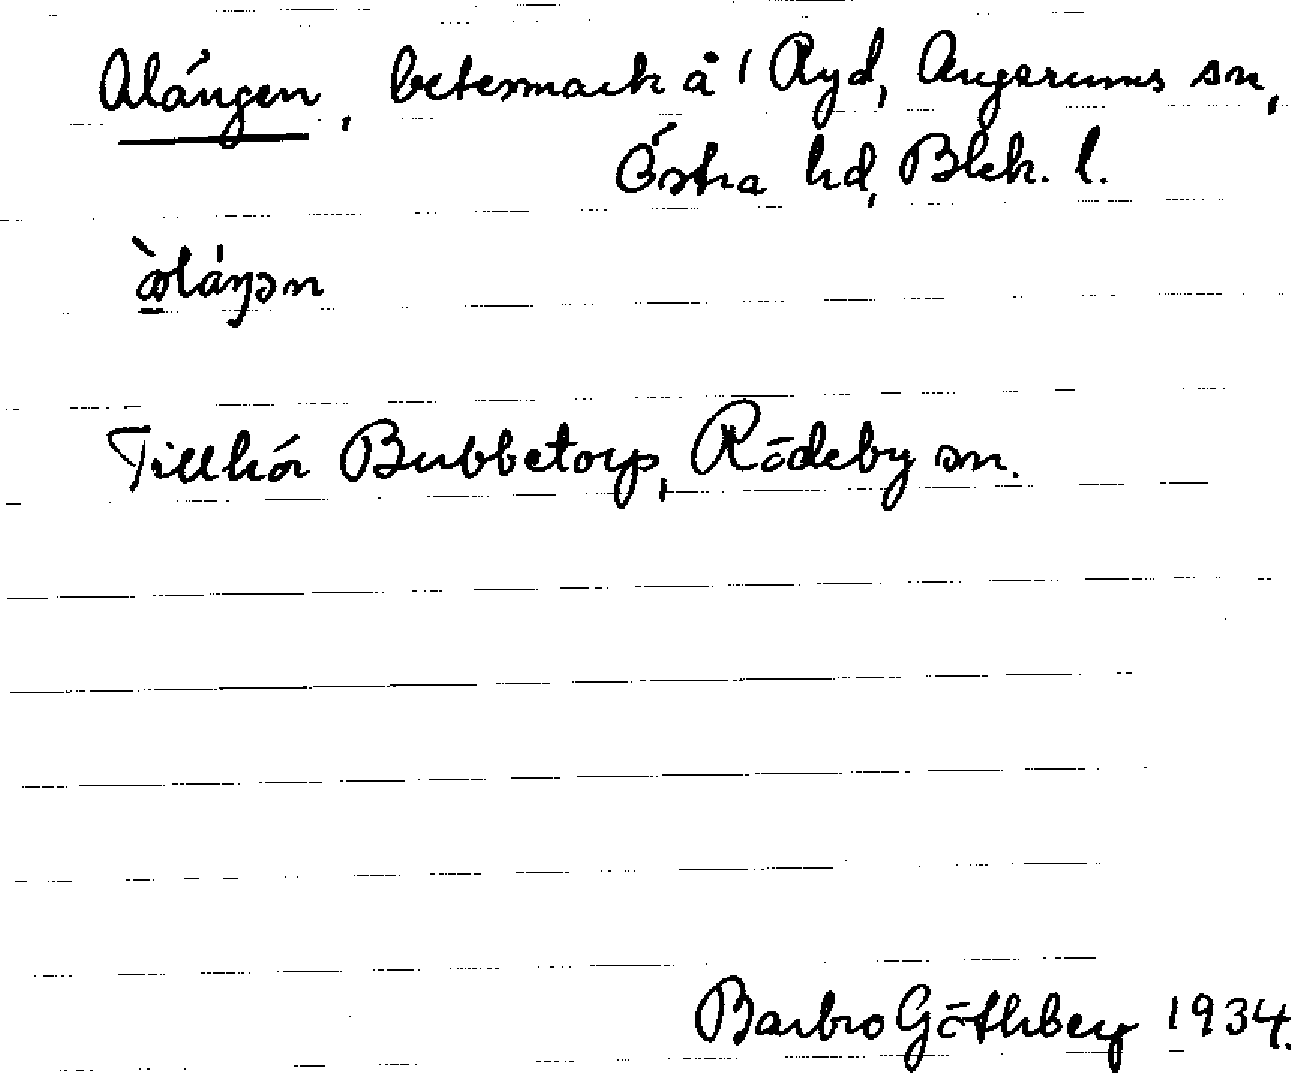 Alängen, betesmark å 1 Ryd, Augerums sn,
Östra hd, Blek. l.
Tillhör Bubbetorp, Rödeby sn.
Barbro Göthberg 1934.